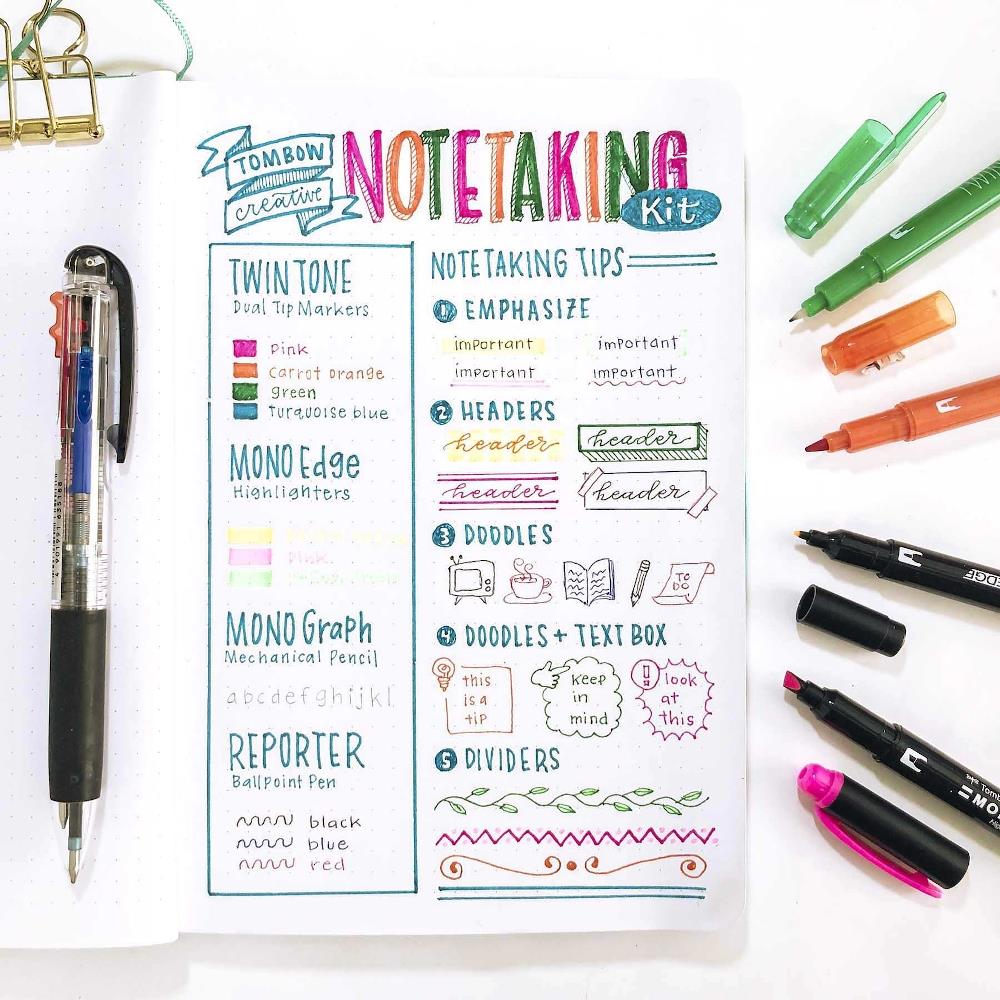 TOMBOW
creative
NOTETAKING
Kit
TWINTONE
Dual Tip Markers
pink
carrot orange
green
turquoise blue
MONO Edge
Highlighters
pink
MONO Graph
Mechanical Pencil
abcdefghijkl
REPORTER
Ballpoint Pen
black
blue
red
NOTETAKING TIPS
1 EMPHASIZE
important important
important important
2 HEADERS
header header
header header
3 DOODLES
TO
DO
4 DOODLES + TEXT BOX
this
is a
tip
keep
in
mind
! look
at
this
5 DIVIDERS
EDGE
Tomb
MO